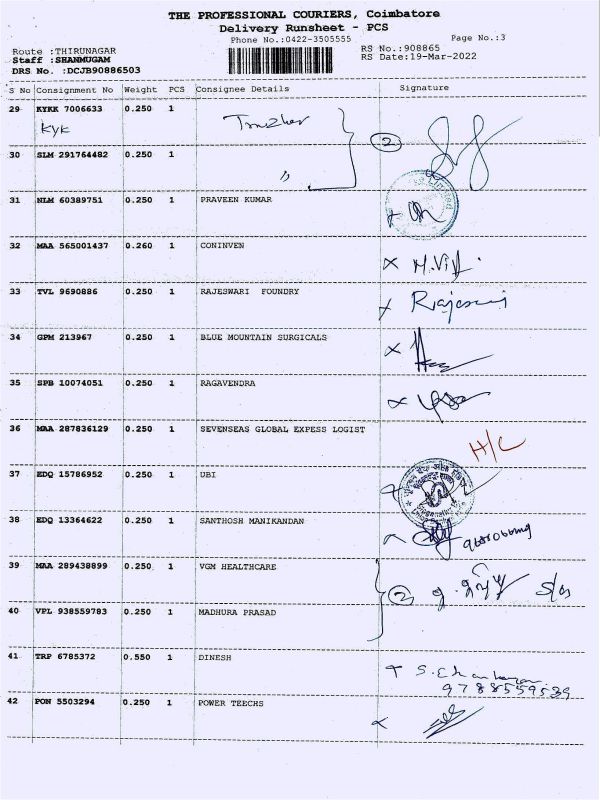 THE PROFESSIONAL COURIERS, Coimbatore
Delivery Runsheet - PCS
Phone No.:0422-3505555
Page No.:3
Route :THIRUNAGAR
RS No.:908865
Staff :SHANMUGAM
RS Date:19-Mar-2022
DRS No. :DCJB90886503
S No Consignment No Weight PCS Consignee Details Signature
29 KYKK 7006633 0.250 1
KYK
2
30 SLM 291764482 0.250 1
31 NLM 60389751 0.250 1 PRAVEEN KUMAR
32 MAA 565001437 0.260 1 CONINVEN
33 TVL 9690886 0.250 1 RAJESWARI FOUNDRY
34 GPM 213967 0.250 1 BLUE MOUNTAIN SURGICALS
35 SPB 10074051 0.250 1 RAGAVENDRA
36 MAA 287836129 0.250 1 SEVENSEAS GLOBAL EXPESS LOGIST
H/C
37 EDQ 15786952 0.250 1 UBI
38 EDQ 13364622 0.250 1 SANTHOSH MANIKANDAN
39 MAA 289438899 0.250 1 VGM HEALTHCARE
2
40 VPL 938559783 0.250 1 MADHURA PRASAD
41 TRP 6785372 0.550 1 DINESH
9788559539
42 PON 5503294 0.250 1 POWER TEECHS